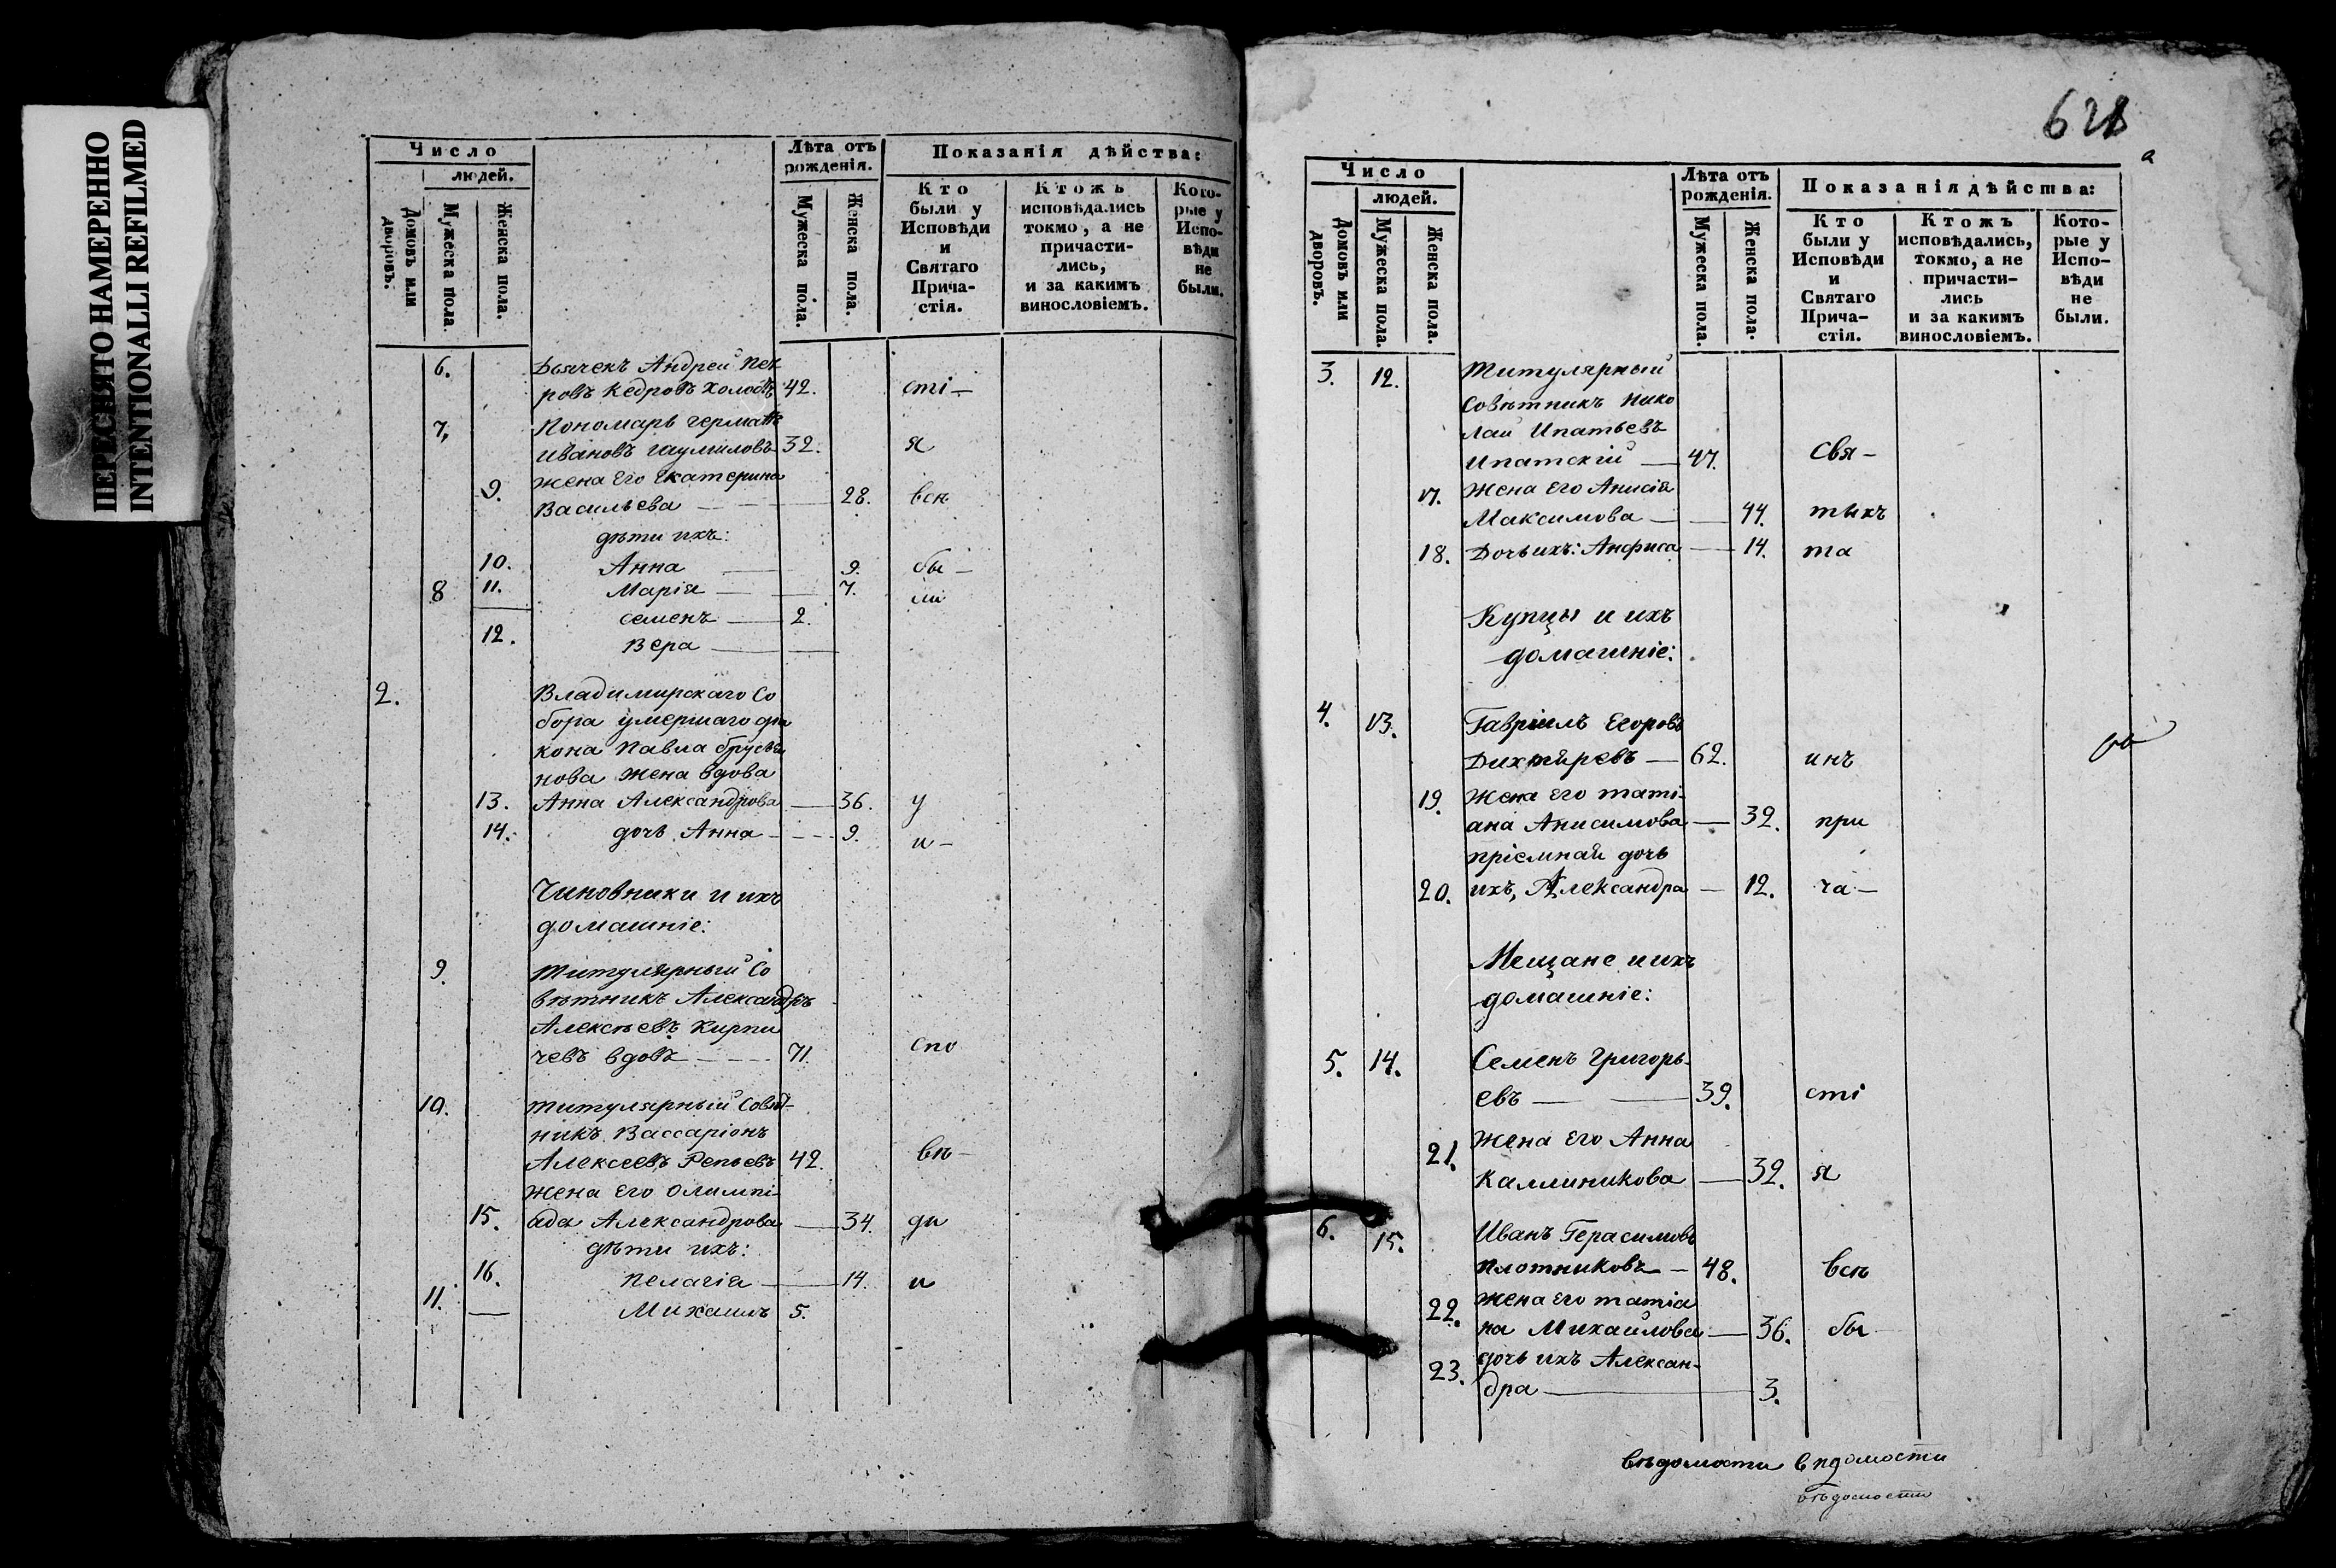 ПЕРЕСНЯТО НАМЕРЕННО
INTENTIONALLI REFILMED
Число
людей.
Домовъ или дворовъ.
Мужеска пола.
Женска пола.
Лѣта отъ рожденія.
Мужеска пола.
Женска пола.
Показанія дѣйства:
Кто были у Исповѣди и Святаго Прича-стія.
Ктожъ исповѣдались токмо, а не причасти-лись, и за какимъ винословіемъ.
Кото-рые у Испо-вѣди не были.
6. Дьячекъ Андрей Пет
ровъ Кедровъ холостъ 42. сті-
7. Пономарь Германъ
Ивановъ 32. я
жена его Екатерина
9. Васильева — 28. всѣ
дѣти ихъ:
10. Анна — 9. бы-
11. Марія — 7. ли
8 Семенъ — 2.
12. Вера —
2. Владимирскаго Со
бора умершаго діа
кона Павла
нова жена вдова
13. Анна Александрова — 36. у
14. дочь Анна — 9. и-
Чиновники и ихъ
домашніе:
9. Титулярный Со
вѣтникъ Александръ
Алексѣевъ Кирпи
чевъ вдовъ — 71. спо
10. Титулярный Совѣт-
никъ Вассаріонъ
Алексеевъ Репьевъ 42. вѣ-
жена его Олимпі-
15. ада Александрова — 34. ди
дѣти ихъ:
16. Пелагія — 14. и
11. — Михаилъ 5.
628
а
Число
людей.
Домовъ или дворовъ.
Мужеска пола.
Женска пола.
Лѣта отъ рожденія.
Мужеска пола.
Женска пола.
Показанія дѣйства:
Кто были у Исповѣди и Святаго Прича-стія.
Ктожъ исповѣдались, токмо, а не причасти-лись и за какимъ винословіемъ.
Кото-рые у Испо-вѣди не были.
3. 12. Титулярный
Совѣтникъ Нико
лай Ипатьевъ
Ипатскій — 47. Свя-
17. Жена его Анисія
Максимова — 44. тыхъ
18. Дочь ихъ: Анфиса — 14. та
Купцы и ихъ
домашніе:
4. 13. Гавріилъ Егоровъ
Дихтяревъ — 62. инъ
19. Жена его Таті-
ана Анисимова — 32. при
пріемная дочь
20. ихъ, Александра — 12. ча-
Мещане и ихъ
домашніе:
5. 14. Семенъ Григорь-
евъ — 39. сті
21. Жена его Анна
Каллиникова — 32. я
6. 15. Иванъ Герасимовъ
Плотниковъ — 48. всѣ
22. Жена его Татіа
на Михайлова — 36. бы
23. дочь ихъ Алексан-
дра — 3.
вѣдомости вѣдомости
вѣдомости